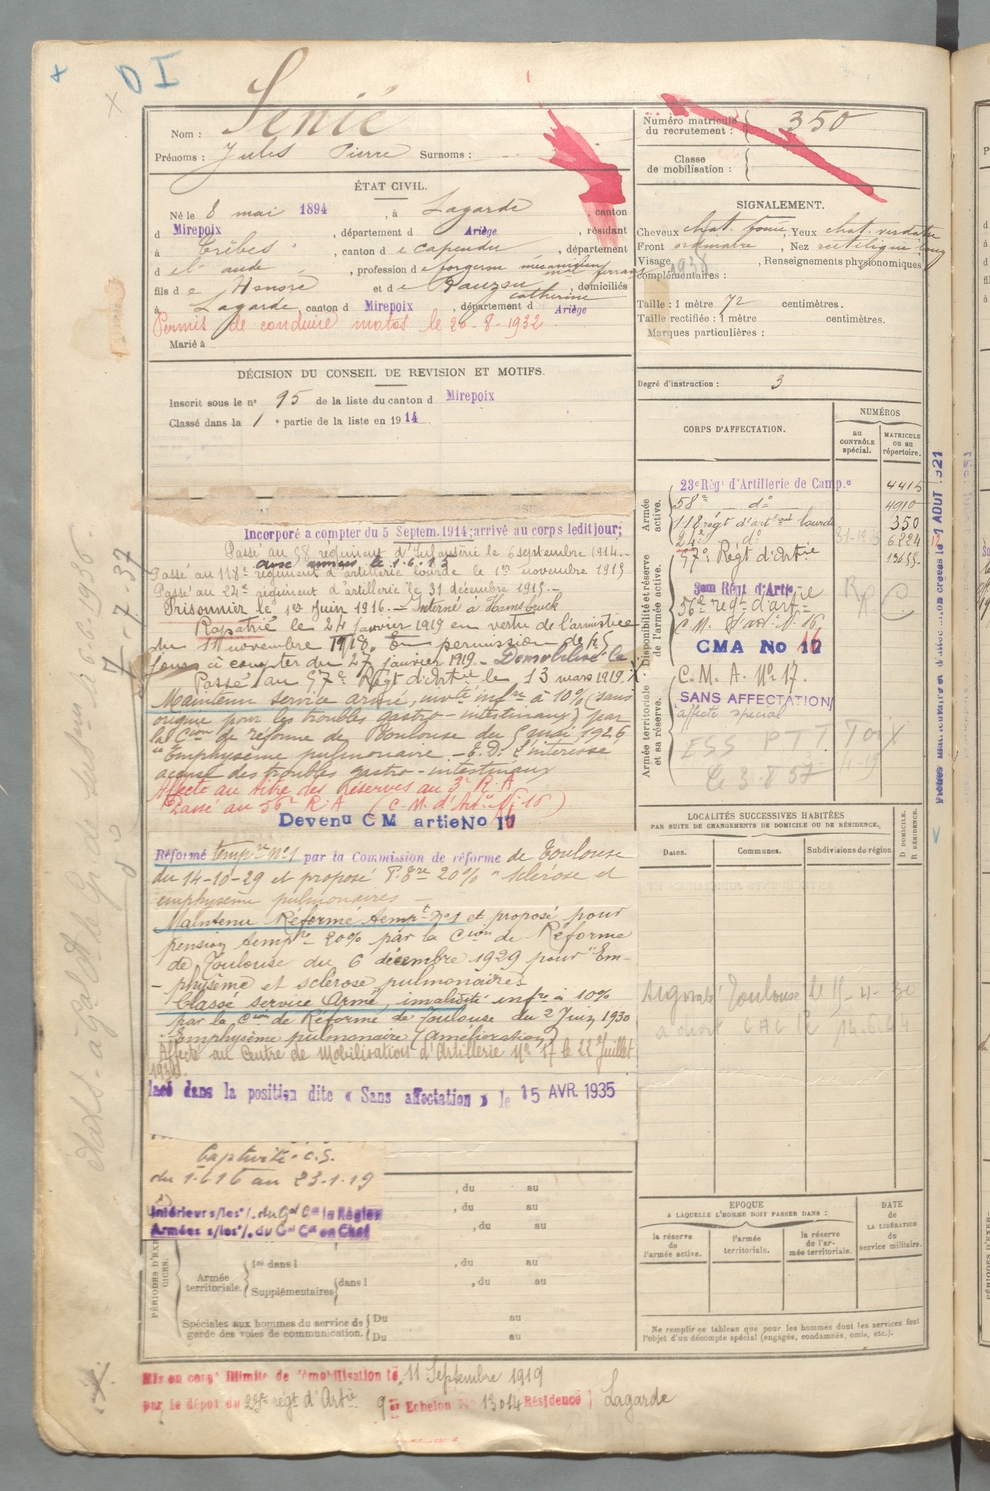 DI
Nom : Senié
Prénoms : Jules Pierre Surnoms :
ÉTAT CIVIL.
Né le 8 mai 1894, à Lagarde, canton
d Mirepoix, département d Ariège, résidant
à Trèbes, canton d e capendu, département
d el aude, profession d e forgeron mécanicien
fils d e Honoré et d e Rauzou catherine, domiciliés
à Lagarde, canton d Mirepoix, département d Ariège
Permis de conduire motos le 26-8-1932
Marié à
DÉCISION DU CONSEIL DE REVISION ET MOTIFS.
Inscrit sous le n° 95 de la liste du canton d Mirepoix
Classé dans la 1e partie de la liste en 1914
Incorporé à compter du 5 Septem. 1914; arrivé au corps ledit jour;
Passé au 58 régiment d'Infanterie le 6 septembre 1914.
Passé au 118e régiment d'artillerie lourde le 1er novembre 1915
Passé au 24e régiment d'artillerie le 31 décembre 1915.
Prisonnier le 1er Juin 1916. Interné à
Rapatrié le 24 janvier 1919 en vertu de l'armistice
du 11 novembre 1918. En permission de 45
jours à compter du 27 janvier 1919. Démobilisé le
Passé au 57e Régt d'Artie le 13 mars 1919.
Maintenu service armé, invté infre à 10% (sans
origine pour les troubles gastro-intestinaux) par
la Cion de réforme de Toulouse du 5 mai 1926
"Emphysème pulmonaire - E.D. L'intéressé
accuse des troubles gastro-intestinaux
Affecté au titre des Réserves au 3e R.A.
Passé au 56e R.A (C.M. d'Artie N° 16)
Devenu CM artie No 17
Réformé tempre N°1 par la Commission de réforme de Toulouse
du 14-10-29 et proposé P. Tre 20% "sclérose et
emphysème pulmonaires
Maintenu Réforme tempre n°1 et proposé pour
pension tempre 20% par la Cion de Réforme
de Toulouse du 6 décembre 1929 pour "Em-
physème et sclérose pulmonaires
Classé service Armé, invalidité infre à 10%
par la Cion de Réforme de Toulouse du 2 Juin 1930
Emphysème pulmonaire (Amélioration)
Affecté au Centre de Mobilisation d'Artillerie N° 17 le 22 Juillet
lacé dans la position dite « Sans affectation » le 15 AVR. 1935
Captivité. C.S.
du 1-6-16 au 23-1-19
Intérieur s/les °/. du Gal Ct la Région
Armées s/les °/. du Gal Ct en Chef
, du au
, du au
, du au
PÉRIODES D'EXERCICES.
Armée territoriale.
1re dans l , du au
Supplémentaires dans l , du au
Spéciales aux hommes du service de garde des voies de communication.
Du au
Du au
Mis en congé illimité de démobilisation le 11 Septembre 1919
par le dépôt du 23e régt d'Artie 9e Echelon No 13014 Résidence Lagarde
Numéro matricule du recrutement : 350
Classe de mobilisation :
SIGNALEMENT.
Cheveux chat. foncé, Yeux chat. verdatre
Front ordinaire, Nez rectiligne long
Visage , Renseignements physionomiques
complémentaires :
Taille : 1 mètre 72 centimètres.
Taille rectifiée : 1 mètre centimètres.
Marques particulières :
Degré d'instruction : 3
CORPS D'AFFECTATION.
NUMÉROS
au CONTRÔLE spécial.
MATRICULE ou au répertoire.
Armée active.
23e Régt d'Artillerie de Campe 4415
58e do 4910
118 régt d'artie lourde 350
24e do 6224
Disponibilité et réserve de l'armée active.
57e Régt d'Artie
3em Régt d'Artie
56e régt d'artie
C.M. d'art. N° 16
CMA No 17
Armée territoriale et sa réserve.
C.M.A. N° 17.
SANS AFFECTATION
affecté special
ESS PTT Foix
le 3-8 57
LOCALITÉS SUCCESSIVES HABITÉES
PAR SUITE DE CHANGEMENTS DE DOMICILE OU DE RÉSIDENCE.
Dates.
Communes.
Subdivisions de région
D DOMICILE. R RÉSIDENCE.
EPOQUE
A LAQUELLE L'HOMME DOIT PASSER DANS :
la réserve de l'armée active.
l'armée territoriale.
la réserve de l'armée territoriale.
DATE de LA LIBÉRATION du service militaire.
Ne remplir ce tableau que pour les hommes dont les services font
l'objet d'un décompte spécial (engagés, condamnés, omis, etc.).